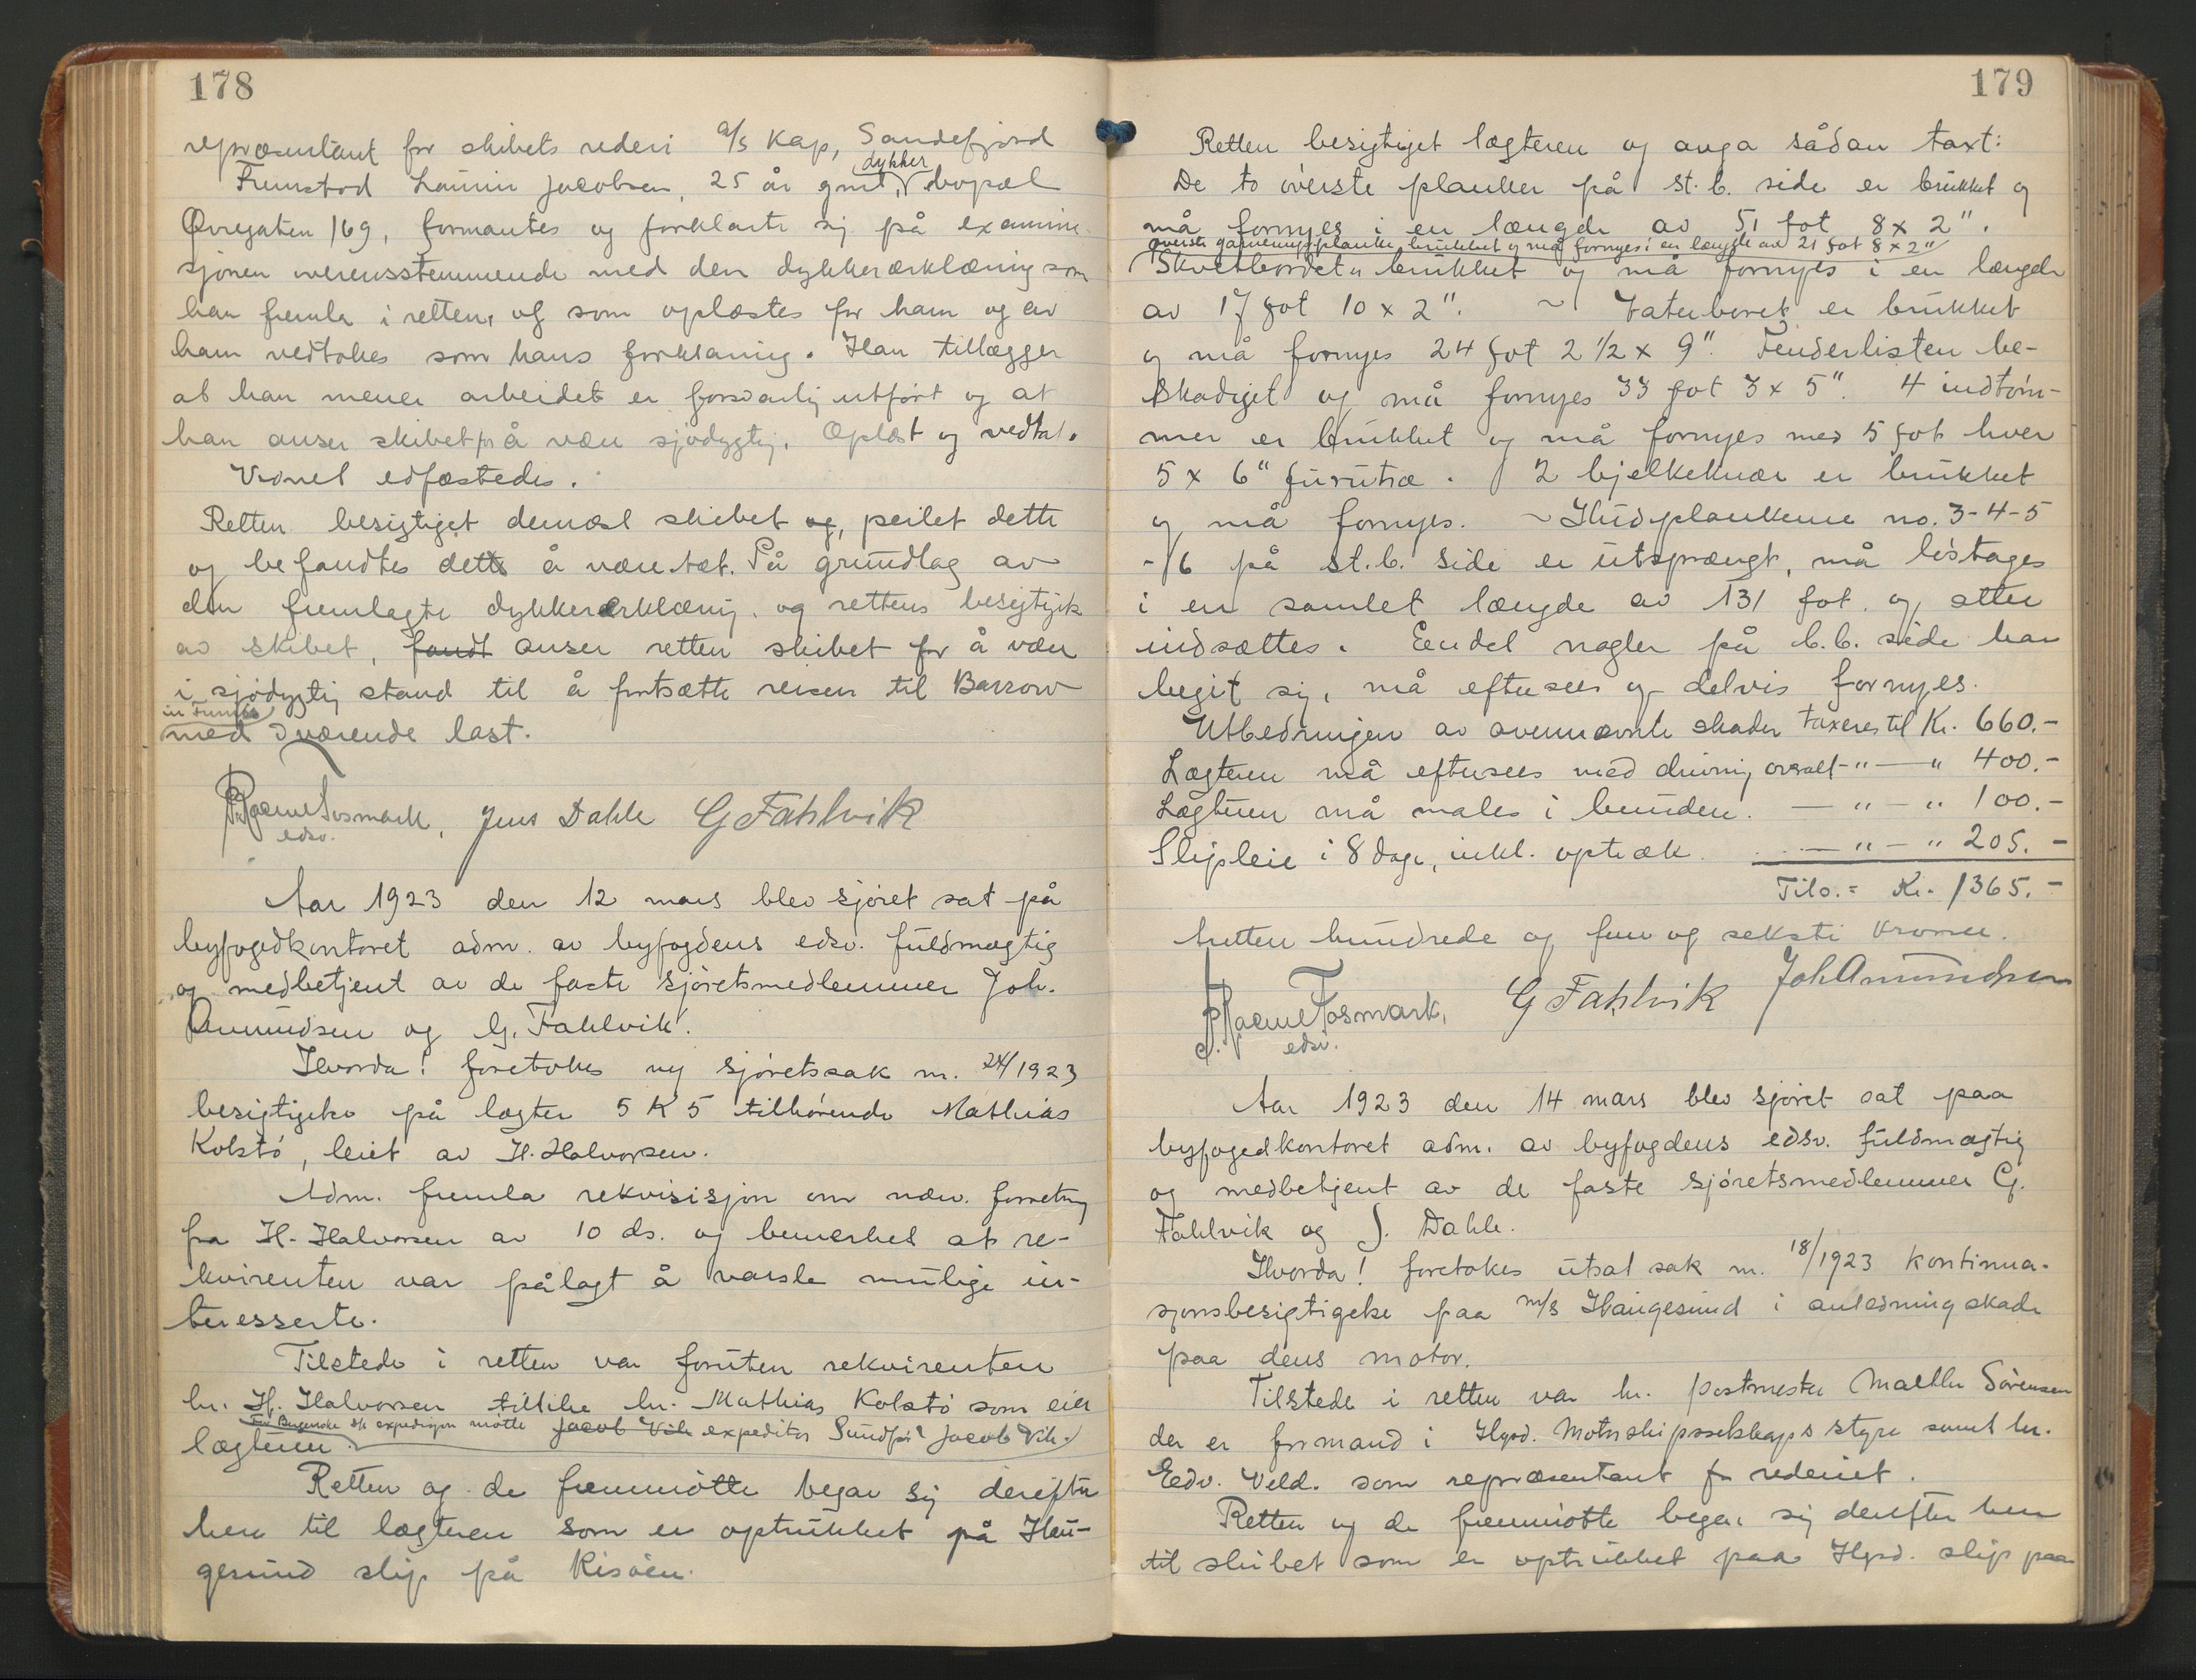 178
repræsentant for skibets rederi a/s Kap, Sandefjord
Fremstod Laurin Jacobsen, 25 år gml, dykker, bopæl
Øvregaten 169, formantes og forklarte sig på examina-
sjonen overensstemmende med den dykkererklæring som
han fremla i retten, og som oplæstes for ham og av
ham vedtokes som hans forklaring. Han tillægger
at han mener arbeidet er forsvarlig utført og at
han anser skibet for å være sjødygtig. Oplæst og vedtat.
Vidnet edfæstedes.
Retten besigtiget dernæst skibet og, peilet dette
og befandtes dette å være tæt. På grundlag av
den fremlagte dykkererklæring og rettens besigtigelse
av skibet, fandt anser retten skibet for å være
i sjødygtig stand til å fortsætte reisen til Barrow
in Furness
med iværende last.
Fosmark, Jens Dahle G Fahlvik
edsv.
Aar 1923 den 12 mars blev sjøret sat på
byfogedkontoret adm. av byfogdens edsv. fuldmægtig
og medbetjent av de faste sjøretsmedlemmer Joh.
Amundsen og G. Fahlvik.
Hvorda! foretokes ny sjøretssak nr. 24/1923
besigtigelse på lægter 5 K 5 tilhørende Mathias
Kolstø, leiet av H. Halvorsen.
Adm. fremla rekvisisjon om nævn. forretning
fra H. Halvorsen av 10 ds. og bemerket at re-
kvirenten var pålagt å varsle mulige in-
teresserte.
Tilstede i retten var foruten rekvirenten
hr. H. Halvorsen tillike hr. Mathias Kolstø som eier
For Bergenske d/s expedisjon møtte Jacob Vik expeditør Sundfør Jacob Vik.
lægteren.
Retten og de fremmøtte begav sig derefter
hen til lægteren som er optrukket på Hau-
gesund slip på Risøen.
179
Retten besigtiget lægteren og avga sådan taxt:
De to øverste planker på st.b. side er brukket og
må fornyes i en længde av 51 fot 8 x 2".
øverste garneringsplanke brukket og må fornyes i en længde av 21 fot 8 x 2"
Skvetbordet er brukket og må fornyes i en længde
av 17 fot 10 x 2". ~ er brukket
og må fornyes 24 fot 2 1/2 x 9". Fenderlisten be-
skadiget og må fornyes 33 fot 3 x 5". 4 indtøm-
mer er brukket og må fornyes med 5 fot hver
5 x 6" furutræ. 2 bjelkeknær er brukket
og må fornyes. ~ Hudplankene no. 3-4-5
-6 på st.b. side er utsprængt, må løstages
i en samlet længde av 131 fot og atter
indsættes. Eendel nagler på b.b. side har
begit sig, må eftersees og delvis fornyes.
Utbedringen av ovennævnte skader taxeres til Kr. 660.-
Lægteren må eftersees med drivning overalt -"-" 400.-
Lægteren må males i bunden. -"-" 100.-
Slipleie i 8 dage, inkl. optræk. -"-" 205.-
Tils. = Kr. 1365.-
tretten hundrede og fem og seksti kroner.
Fosmark, G Fahlvik Joh Amundsen
edsv.
Aar 1923 den 14 mars blev sjøret sat paa
byfogedkontoret adm. av byfogdens edsv. fuldmægtig
og medbetjent av de faste sjøretsmedlemmer G.
Fahlvik og J. Dahle.
Hvorda! foretokes utsat sak nr. 18/1923 kontinua-
sjonsbesigtigelse paa m/s Haugesund i anledning skade
paa dens motor.
Tilstede i retten var hr. postmester Malthe Sørensen
der er formand i Hgsd. Motorskipsselskaps styre samt hr.
Edv. Veld. som repræsentant for rederiet.
Retten og de fremmøtte begav sig derefter hen
til skibet som er optrukket paa Hgsd. slip paa